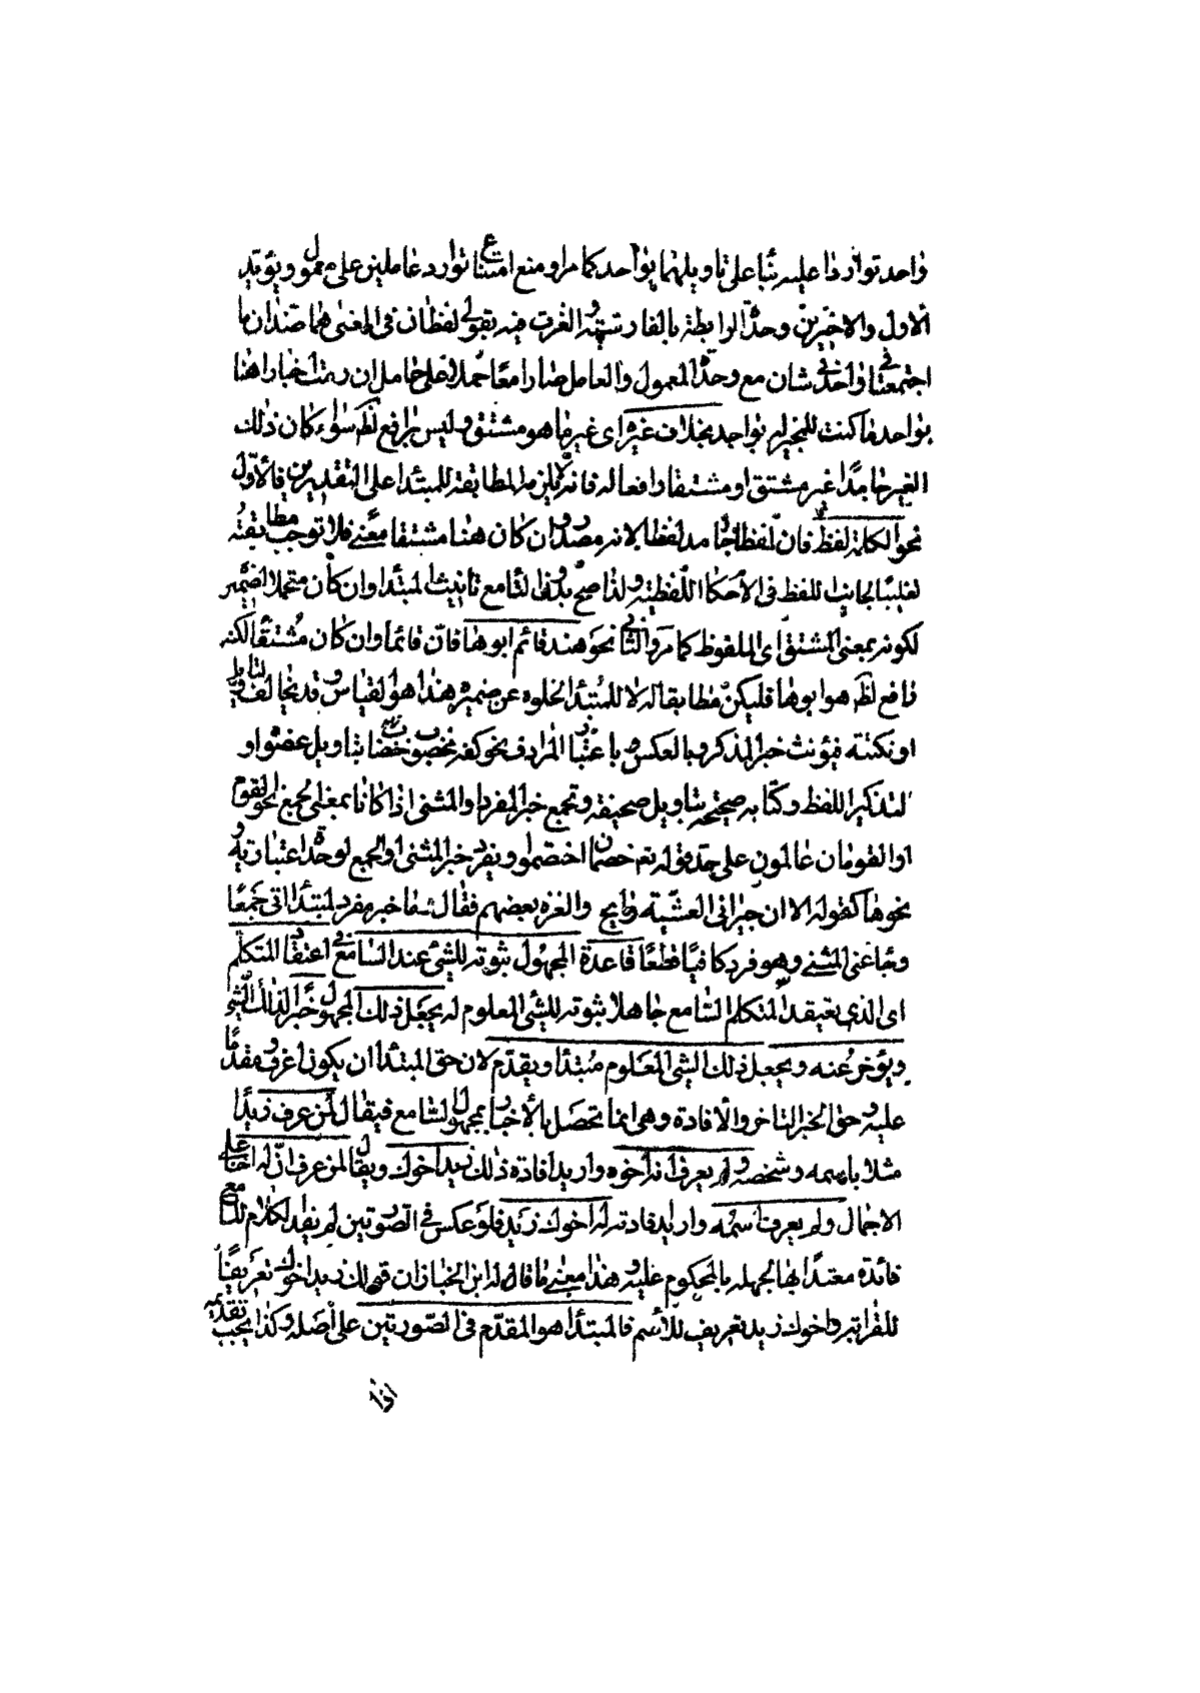 واحد تواردا عليه بناء على تاويلهما بواحد كما مر ومنع امتناع توارد عاملين على معمول ويؤيد
الاول والاخيرين وحدة الرابطة بالفارسية والغرب فيه بقولي لفظان في المعنى هما ضدان ما
اجتمعتا في واحد في شان مع وحدة المعمول والعامل صارا معا حملا على حامل ان رمت اخبارا هنا
بواحد ما كنت للخبر بواجد بخلاف غيره اي غير ما هو مشتق وليس برافع لظ سواء كان ذلك
الغير جامدا غير مشتق او مشتقا رافعا له فانه لا يلزم المطابقة للمبتدا على التقديرين فالأول
نحو الكلمة لفظ فان لفظا جامد لفظا لانه مصدر وان كان هنا مشتقا معنى فلا توجب مطابقته
تغليبا لجانب اللفظ في الأحكام اللفظية ولذا صح بدون التاء مع تانيث المبتدا وان كان متحملا لضمير
لكونه بمعنى المشتق اي الملفوظ كما مر والثاني نحو هند قائم ابوها فان قائما وان كان مشتقا لكنه
رافع لظ هو ابوها فليكن مطابقا له لا للمبتدا لخلوه عن ضميره هذا هو القياس وقد يخالف لتاويل
او نكتة فيؤنث خبر المذكر وبالعكس باعتبار المرادف نحو كفه مخضوب خضابا بتاويل عضو او
لتذكير اللفظ وكتابه صحيحة بتاويل صحيفة وتجمع خبر المفرد والمثنى اذا كانا بمعنى الجمع نحو القوم
او القومان عالمون على حد قوله تع خصمان اختصموا ويفرد خبر المثنى او الجمع لوحدة اعتبارية
نحوها كقوله الا ان جيراني العشية رايح والغزه بعضهم فقال ما خبر مفرد لمبتدا اتى جمعا
وجا عن المثنى وهو فرد كافيا قطعا قاعدة المجهول ثبوته للشئ عند السامع في اعتقاد المتكلم
اي الذي يعتقد المتكلم السامع جاهلا بثبوته للشئ المعلوم له يجعل ذلك المجهول خبرا لذلك الشئ
ويؤخر عنه ويجعل ذلك الشئ المعلوم مبتدا ويقدم لان حق المبتدا ان يكون اعرف ومقدما
عليه وحق الخبر التاخر والافادة وهي انما تحصل بالأخبار بمجهول السامع فيقال لمن عرف زيدا
مثلا باسمه وشخصه ولم يعرف انه اخوه واريد افادة ذلك زيد اخوك ويقال لمن عرف ان له اخا على
الاجمال ولم يعرف اسمه واريد افادته له اخوك زيد فلو عكس في الصورتين لم يفد الكلام للسامع
فائدة معتدا بها لجهله بالمحكوم عليه وهذا معنى ما قال له ابن الخباز ان قولك زيد اخوك تعريفا
للقرابة واخوك زيد تعريف للاسم فالمبتدا هو المقدم في الصورتين على أصله وكذا يجب تقديمه
اذا